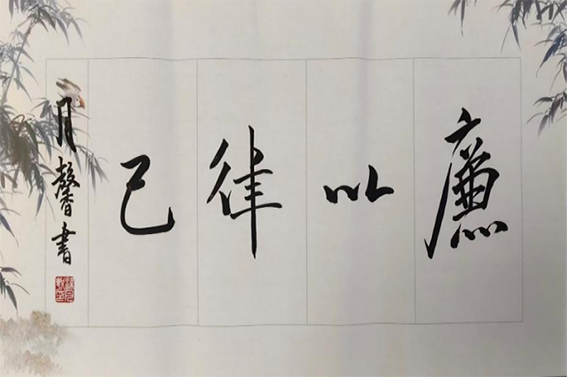 廉以律己
月馨書